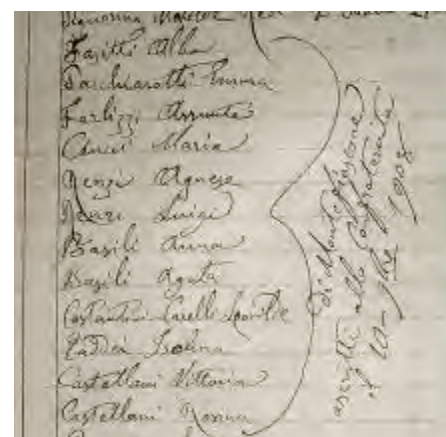 Fasitti Alba
Pacchiarotti Emma
Farlizzi Assunta
Cencci Maria
Renzi Agnese
Renzi Luigi
Basili Anna
Basili Agata
Costantini Caselli Leonilde
Taddei Isolina
Castellani Vittoria
Castellani Rosina
di Montefiascone
ascritti alla Confraternita
il 10 - 9bre 1908